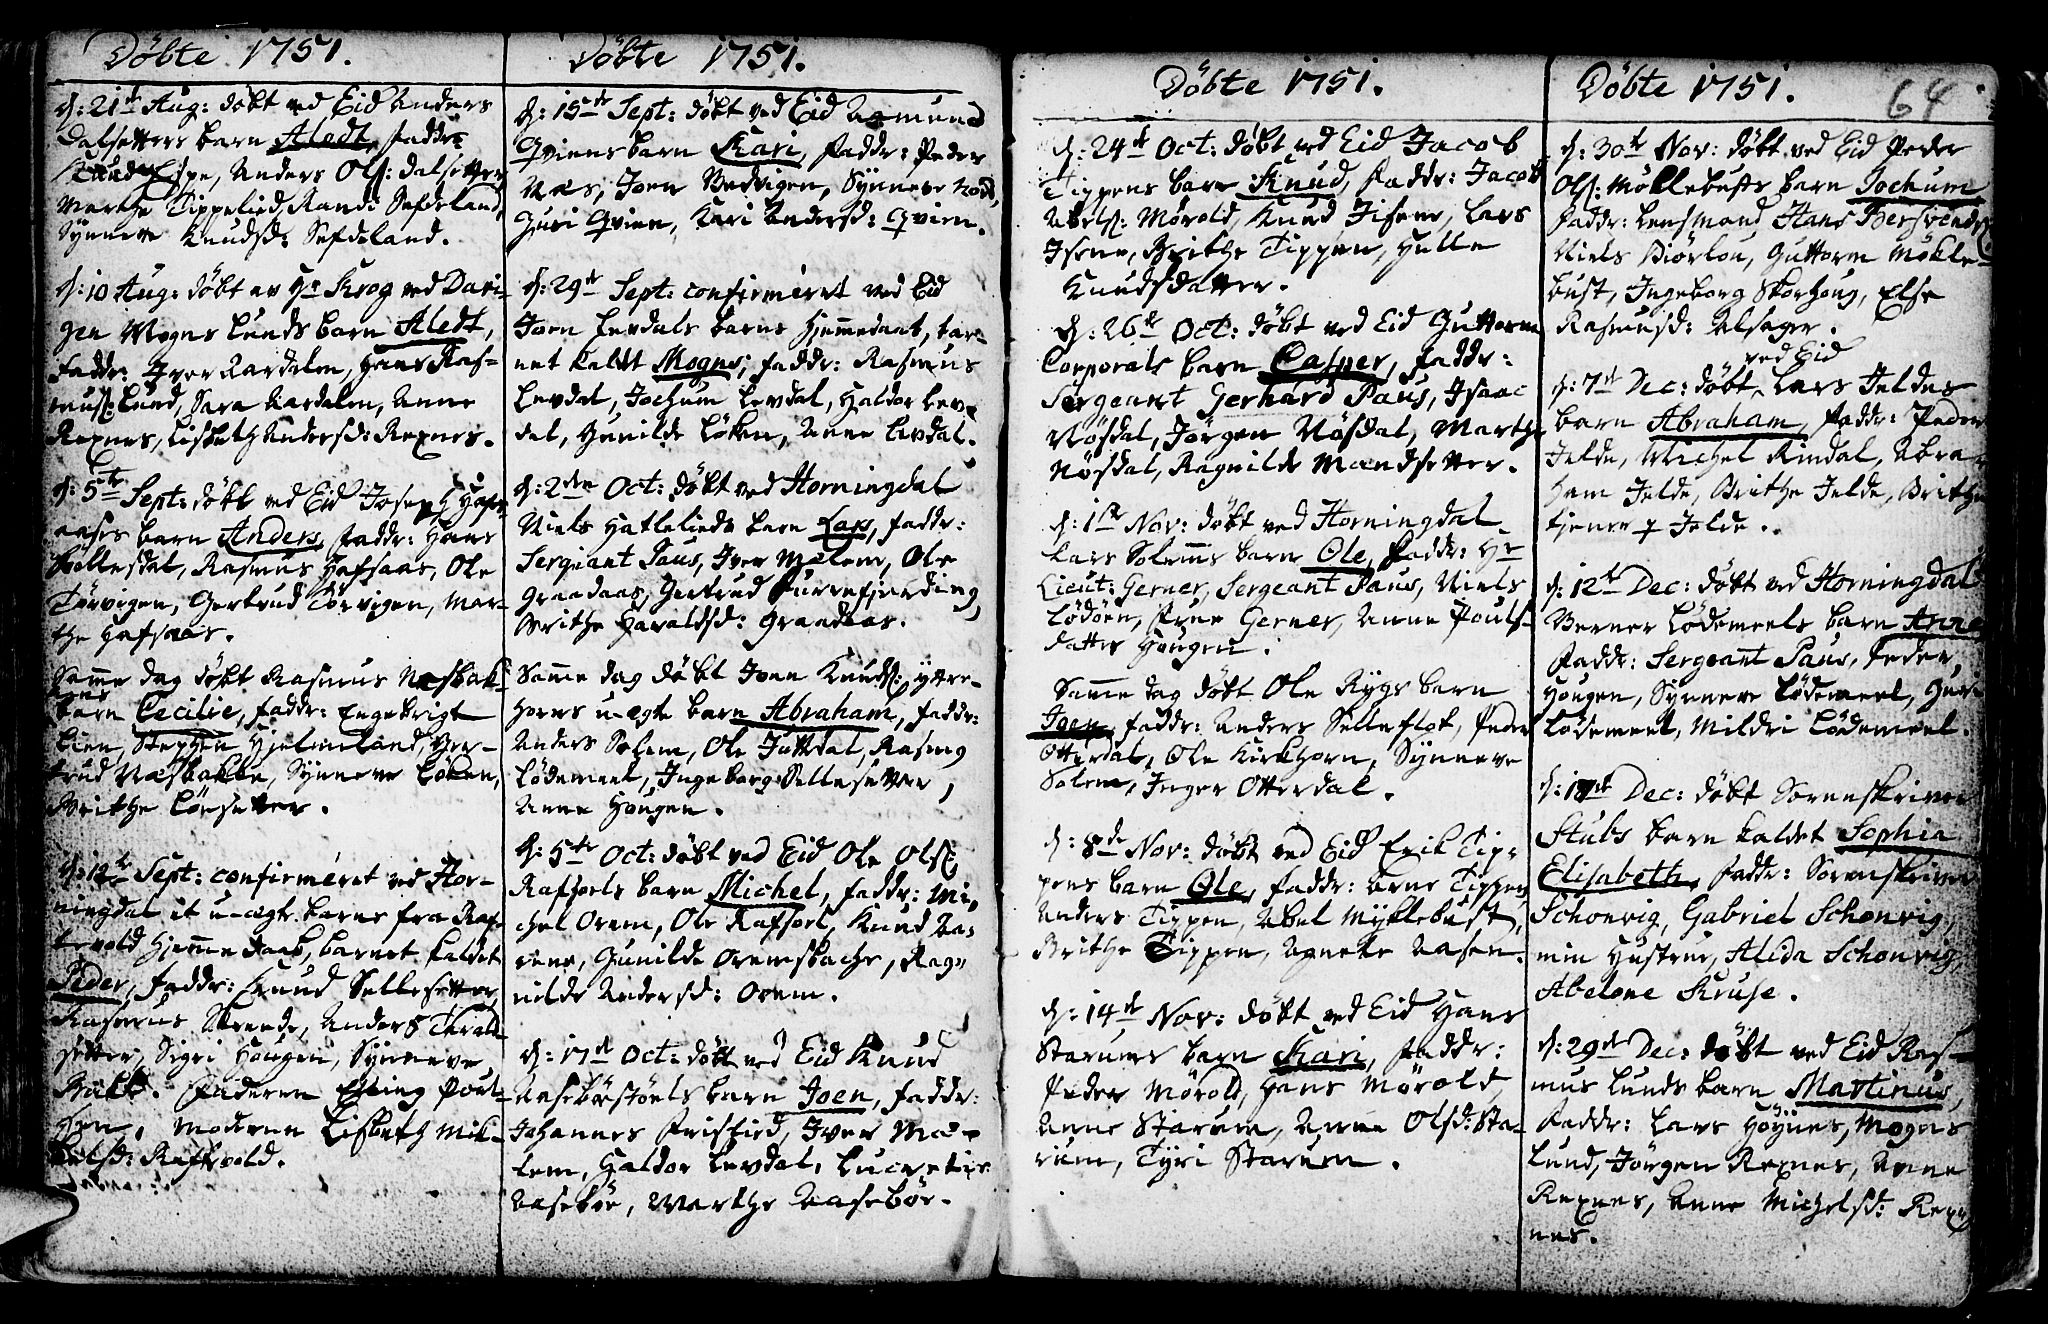 Döbte 1751.
d: 21de Aug: döbt ved Eid Anders
Dalsetters barn Aledt, faddr:
Knud Espe, Anders Ols: dalsetter,
Marthe Tippelied, Randi Sefdeland,
Synneve Knudsd: Sefdeland.
d: 10 Aug: döbt av Hr Krog ved Davi-
gen Mogns Lunds barn Aledt,
faddr: Iver Aardalen, Hans Ras-
mus: Lund, Sara Aardalen, Anne
Rexnes, Lisbeth Andersd: Rexnes.
d: 5te Sept: döbt ved Eid Joseph Hafs-
aases barn Anders, faddr: Hans
Rasmus Hafsaas, Ole
Torvigen, Gertrud Torvigen, Mar-
the Hafsaas.
Samme dag döbt Rasmus Næsbak-
kens
barn Cecilie, faddr: Engebrigt
Lien, Stephen Hjelmeland, Ger-
trud Næsbakke, Synneve Löken,
Brithe Lörsetter.
d: 12te Sept: confirmeret ved Hor-
ningdal et u-ægte barns fra Raf-
tevold hjemme daab, barnet kaldet
Peder, faddr: Knud Sellesetter,
Rasmus Skrede, Anders Tvead-
setter, Sigri Hougen, Synneve
faderen Elling Poul-
sen, moderen Lisbeth Mik-
kelsd: Raftevold.
Döbte 1751.
d: 15de Sept: döbt ved Eid Asmund
Qviens barn Kari, faddr: Peder
Næs, Joen Bedvigen, Synneve Nord,
Guri Qvien, Kari Andersd: Qvien.
d: 29de Sept: confirmeret ved Eid
Joen Levdals barns hjemmedaab, bar-
net kaldt Mogns; faddr: Rasmus
Levdal, Jochum Levdal, Haldor Lev-
dal, Gunilde Löken, Anne Levdal.
d: 2den Oct: döbt ved Horningdal
Niels Hatlelieds barn Lars, faddr:
Sergiant Paus, Iver Mælem, Ole
Graadaas, Gertrud Furrefjerding,
Brithe Haraldsd: Graadaas.
Samme dag döbt Joen Knuds: Yttre-
horns u-ægte barn Abraham, faddr:
Anders Solem, Ole Jöttdal, Rasmus
Lödemeel, Ingeborg Sellesetter,
Anne Hougen.
d: 5te Oct: döbt ved Eid Ole Ols:
Rafsoels barn Michel, faddr: Mi-
chel Orem, Ole Rafsoel, Knud Aa-
rene, Gunilde Oremsbache, Rag-
nilde Andersd: Orem.
d: 17de Oct: döbt ved Eid Knud
Aaseböstöels barn Joen, faddr:
Johannes Frislied, Iver Mæ-
lem, Haldor Levdal, Lucretie
Aaseböe, Marthe Aaseböe.
Döbte 1751.
d: 24de Oct: döbt ved Eid Jacob
Tippens barn Knud, faddr: Jacob
Abels: Mörold, Knud Isene, Lars
Isene, Brithe Tippen, Helle
Knudsdatter.
d: 26de Oct: döbt ved Eid Guttorm
Corporals barn Casper, faddr:
Sergeant Gerhard Paus, Isaac
Nösdal, Jörgen Nösdal, Marthe
Nösdal, Ragnilde Mandsetter.
d: 1ste Nov: döbt ved Horningdal
Lars Solems barn Ole, faddr: Hr
Lieut: Gerner, Sergeant Paus, Niels
Lödöen, frue Gerner, Anne Pouls-
datter Hougen.
Samme dag döbt Ole Rygs barn
Joen, faddr: Anders Selleflot, Peder
Otterdal, Ole Kirkhorn, Synneve
Solem, Inger Otterdal.
d: 8de Nov: döbt ved Eid Erik Tip-
pens barn Ole, faddr: Arne Tippen,
Anders Tippen, Abel Myklebust,
Brithe Tippen, Agnete Aasen.
d: 14de Nov: döbt ved Eid Hans
Starums barn Kari, faddr:
Peder Mörold, Hans Mörold,
Anne Starum, Anne Olsd: Sta-
rum, Tyri Starum.
Döbte 1751.
64
d: 30te Nov: döbt ved Eid Peder
Ols: Möklebusts barn Jochum
faddr: Lensmand Hans Bersvends:
Niels Biörlou, Guttorm Mökle-
bust, Ingeborg Skorhoug, Else
Rasmusd: Alsager.
ved Eid
d: 7de Dec: döbt Lars Jeldes
barn Abraham, faddr: Peder
Jelde, Michel Rindal, Abra-
ham Jelde, Brithe Jelde, Brithe
tjener p Jelde.
d: 12te Dec: döbt ved Horningdal
Berner Lödemeels barn Anne
faddr: Sergeant Paus, Peder
Hougen, Synneve Lödemeel, Guri
Lödemeel, Mildri Lödemeel.
Dec: döbt Sorenskriver
Stubs barn kaldet Sophia
Elisabeth, faddr: Sorenskriver
Schonvig, Gabriel Schonvig,
min Hustrue, Alida Schonvig,
Abelone Kruse.
d: 29de Dec: döbt ved Eid Ras-
mus Lunds barn Martinus,
faddr: Lars Höynes, Mogns
Lund, Jörgen Rexnes, Anne
Rexnes, Anne Michelsd: Rex-
nes.